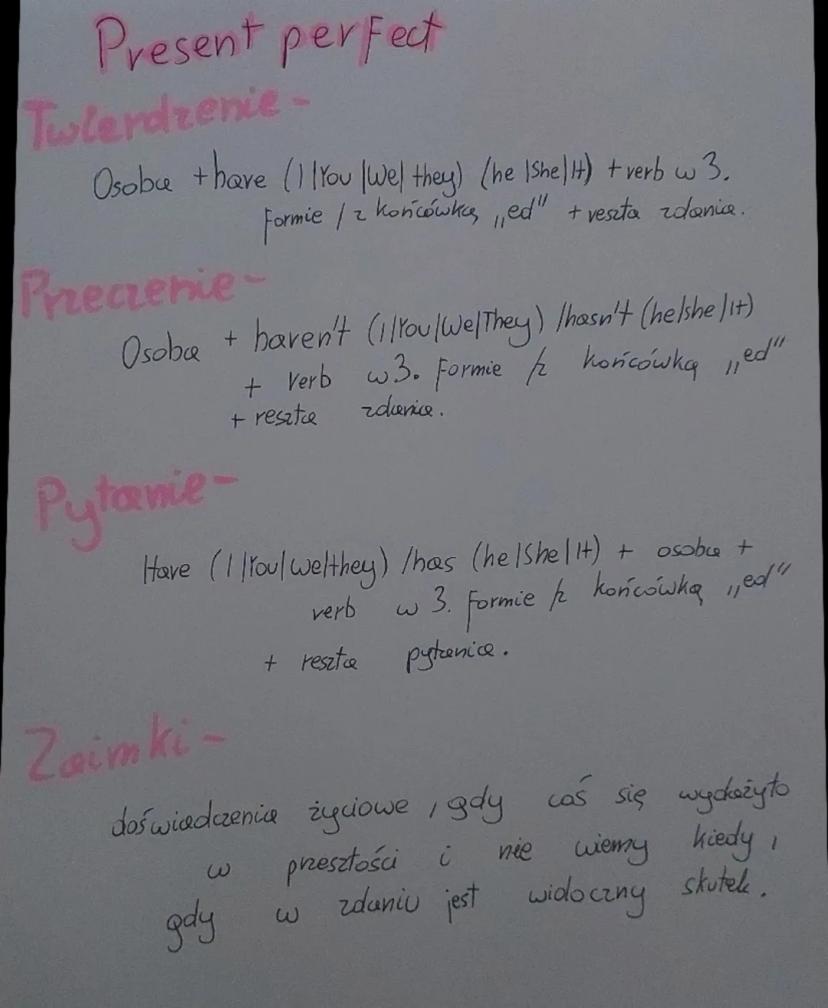 Present perfect
Twierdzenie -
Osoba + have (I/You/We/they) (he/She/It) + verb w 3.
Formie / z końcówką „ed" + reszta zdania.
Przeczenie -
Osoba + haven't (I/You/We/They) / hasn't (he/she/It)
+ verb w 3. Formie /z końcówką „ed"
+ reszta zdania.
Pytanie -
Have (I/You/we/they) /has (he/She/It) + osoba +
verb w 3. Formie /z końcówką „ed"
+ reszta pytania.
Zaimki -
doświadczenia życiowe, gdy coś się wydażyło
w przeszłości i nie wiemy kiedy,
gdy w zdaniu jest widoczny skutek.